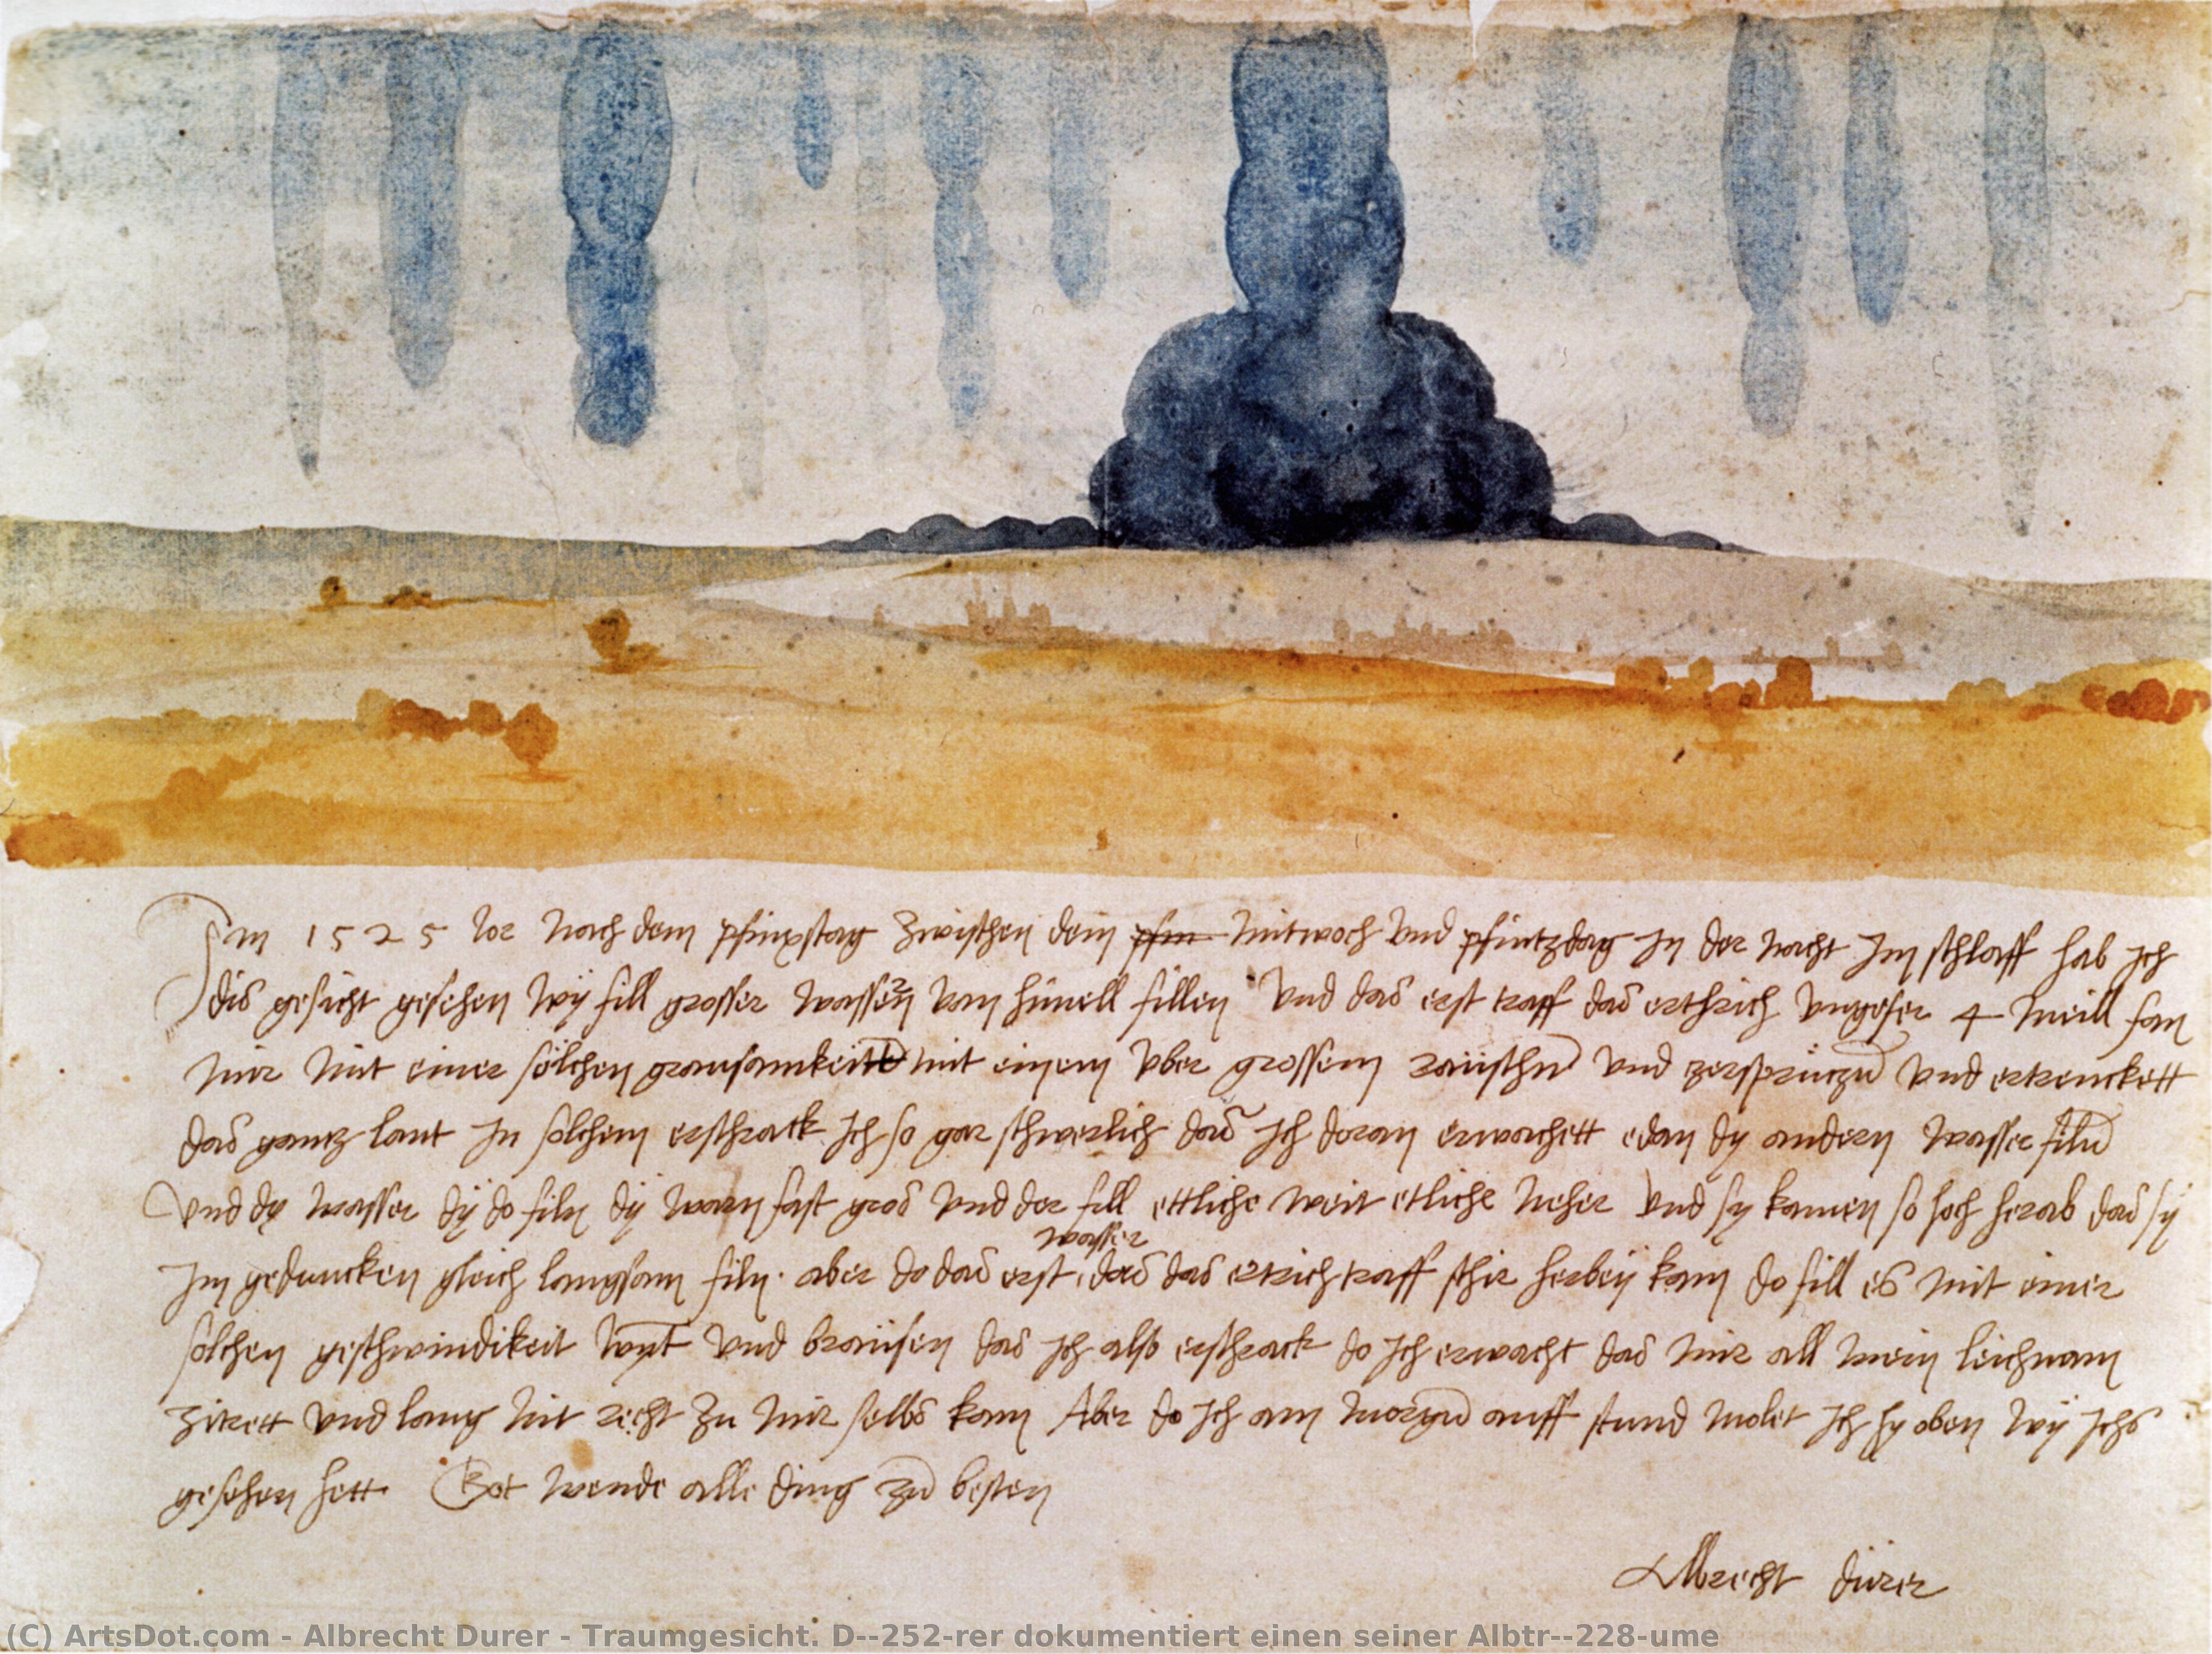 Im 1525 Jor nach dem pfinxstag zwischen dem pfin mitwoch und pfintzdag in der nacht im schlaff hab ich
dis gesicht gesehen wÿ fill grosser wassern vom himell fillen Und das erst traff das erthrich ungefer 4 meill fan
mir mit einer sölchen grausamkeitt mit einem uber grossem raüschn und zersprützn und ertrenckett
das gantz lant In sölchem erschrack ich so gar schwerlich das ich doran erwachett edan dy andern wasser filn
Und dy wasser dÿ do filn dÿ warn fast gros und der fill ettliche weit etliche neher und sy kamen so hoch herab das sÿ
im geduncken gleich langsam filn. aber do das erst wasser das das ertrich traff schir herbeÿ kam do fill es mit einer
sölchen geschwindikeit wynt und braüsen das ich also erschrack do ich erwacht das mir all mein leichnam
zitrett und lang nit recht zu mir selbs kam Aber do ich am morgn auff stund molet ich hy oben wÿ ichs
gesehen hett. Got wende alle ding zu besten
Albrecht dürer
(C) ArtsDot.com - Albrecht Durer - Traumgesicht. D--252-rer dokumentiert einen seiner Albtr--228-ume